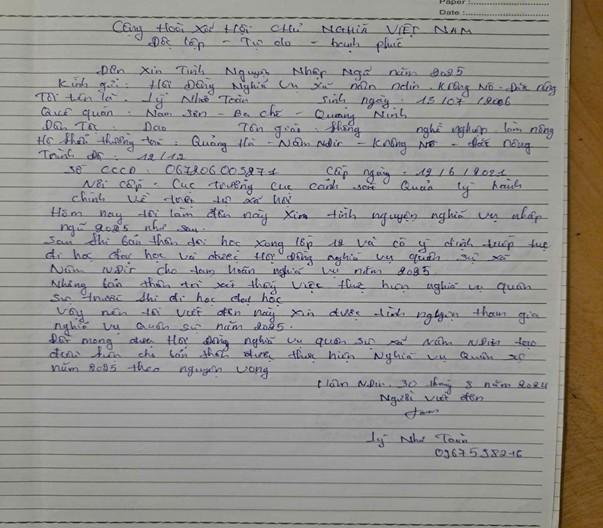 Paper :
Date :
Cộng Hoà Xã Hội Chủ Nghĩa VIỆT NAM
Độc lập - Tự do - hạnh phúc
Đơn Xin Tình Nguyện Nhập Ngũ năm 2025
Kính gửi : Hội Đồng Nghĩa vụ xã nâm ndir. Krông Nô - Đăk nông
Tôi tên là . Lý Nhớ Toàn sinh ngày : 15/07/2006
Quê quán : Nam Sơn - Ba chẽ - Quảng Ninh
Dân Tộc Dao Tôn giáo : không nghề nghiệp làm nông
Hộ khẩu thường trú : Quảng Hà - Nâm Ndir - Krông Nô - đắk Nông
Trình độ : 12/12
Số CCCD : 067206005871 Cấp ngày : 12/6/2021
Nơi cấp - Cục trưởng cục cảnh sát Quản lý hành
chính về trật tự xã hội
Hôm nay tôi làm đơn này xin tình nguyện nghĩa vụ nhập
ngũ 2025 như sau.
Sau khi bản thân tôi học xong lớp 12 và có ý định tiếp tục
đi học đại học và được Hội đồng nghĩa vụ quân sự xã
Nâm NDir cho tạm hoãn nghĩa vụ năm 2025
Nhưng bản thân tôi xét thấy việc thực hiện nghĩa vụ quân
sự trước khi đi học đại học
Vậy nên tôi viết đơn này xin được tình nguyện tham gia
nghĩa vụ Quân sự năm 2025.
Rất mong được Hội Đồng nghĩa vụ quân sự xã Nâm NDir tạo
điều kiện cho bản thân được thực hiện Nghĩa vụ Quân sự
năm 2025 theo nguyện vọng
Nâm NDir. 30 tháng 8 năm 2024
Người viết đơn
Lý Nhớ Toàn
0967598216